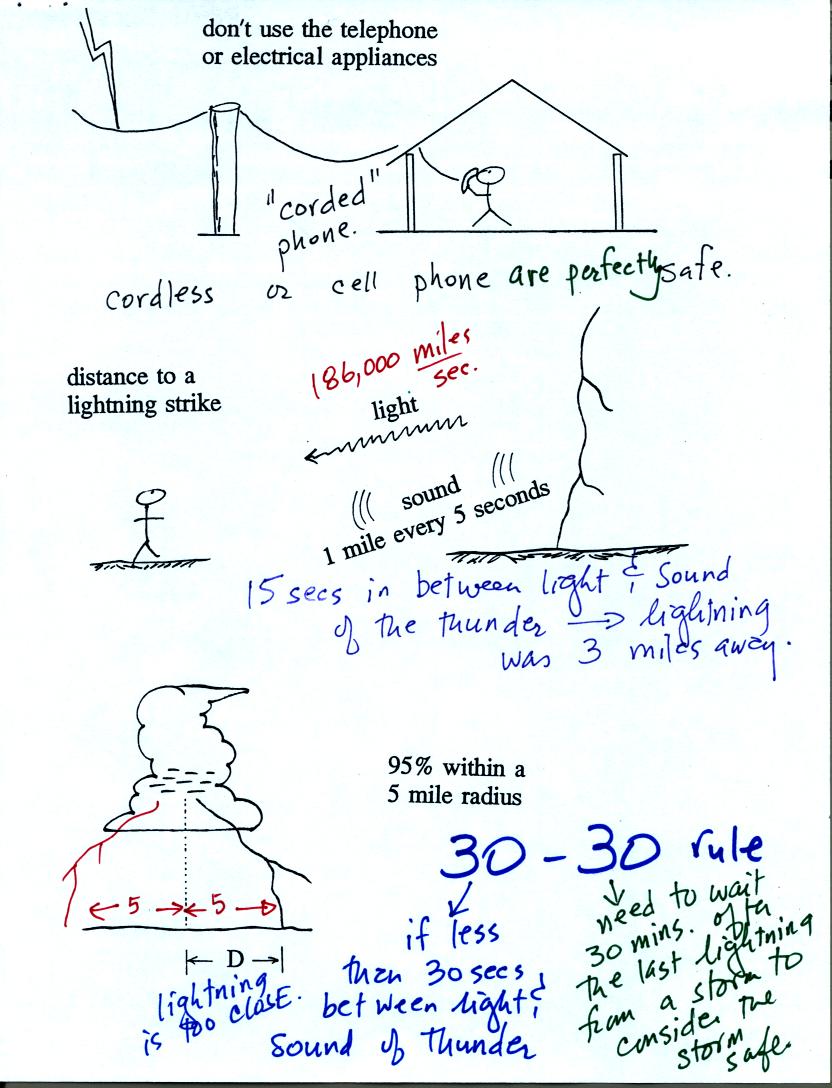 don't use the telephone
or electrical appliances
"corded"
phone.
cordless or cell phone are perfectly safe.
distance to a
lightning strike
186,000 miles
sec.
light
sound
1 mile every 5 seconds
15 secs in between light & Sound
of the thunder → lightning
was 3 miles away.
95% within a
5 mile radius
30 - 30 rule
5 5
D
lightning
is too close.
if less
than 30 secs
between light &
Sound of Thunder
need to wait
30 mins. after
the last lightning
from a storm to
consider the
storm
safe.